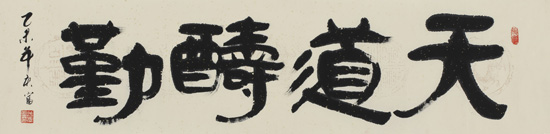 天道酬勤
乙未年